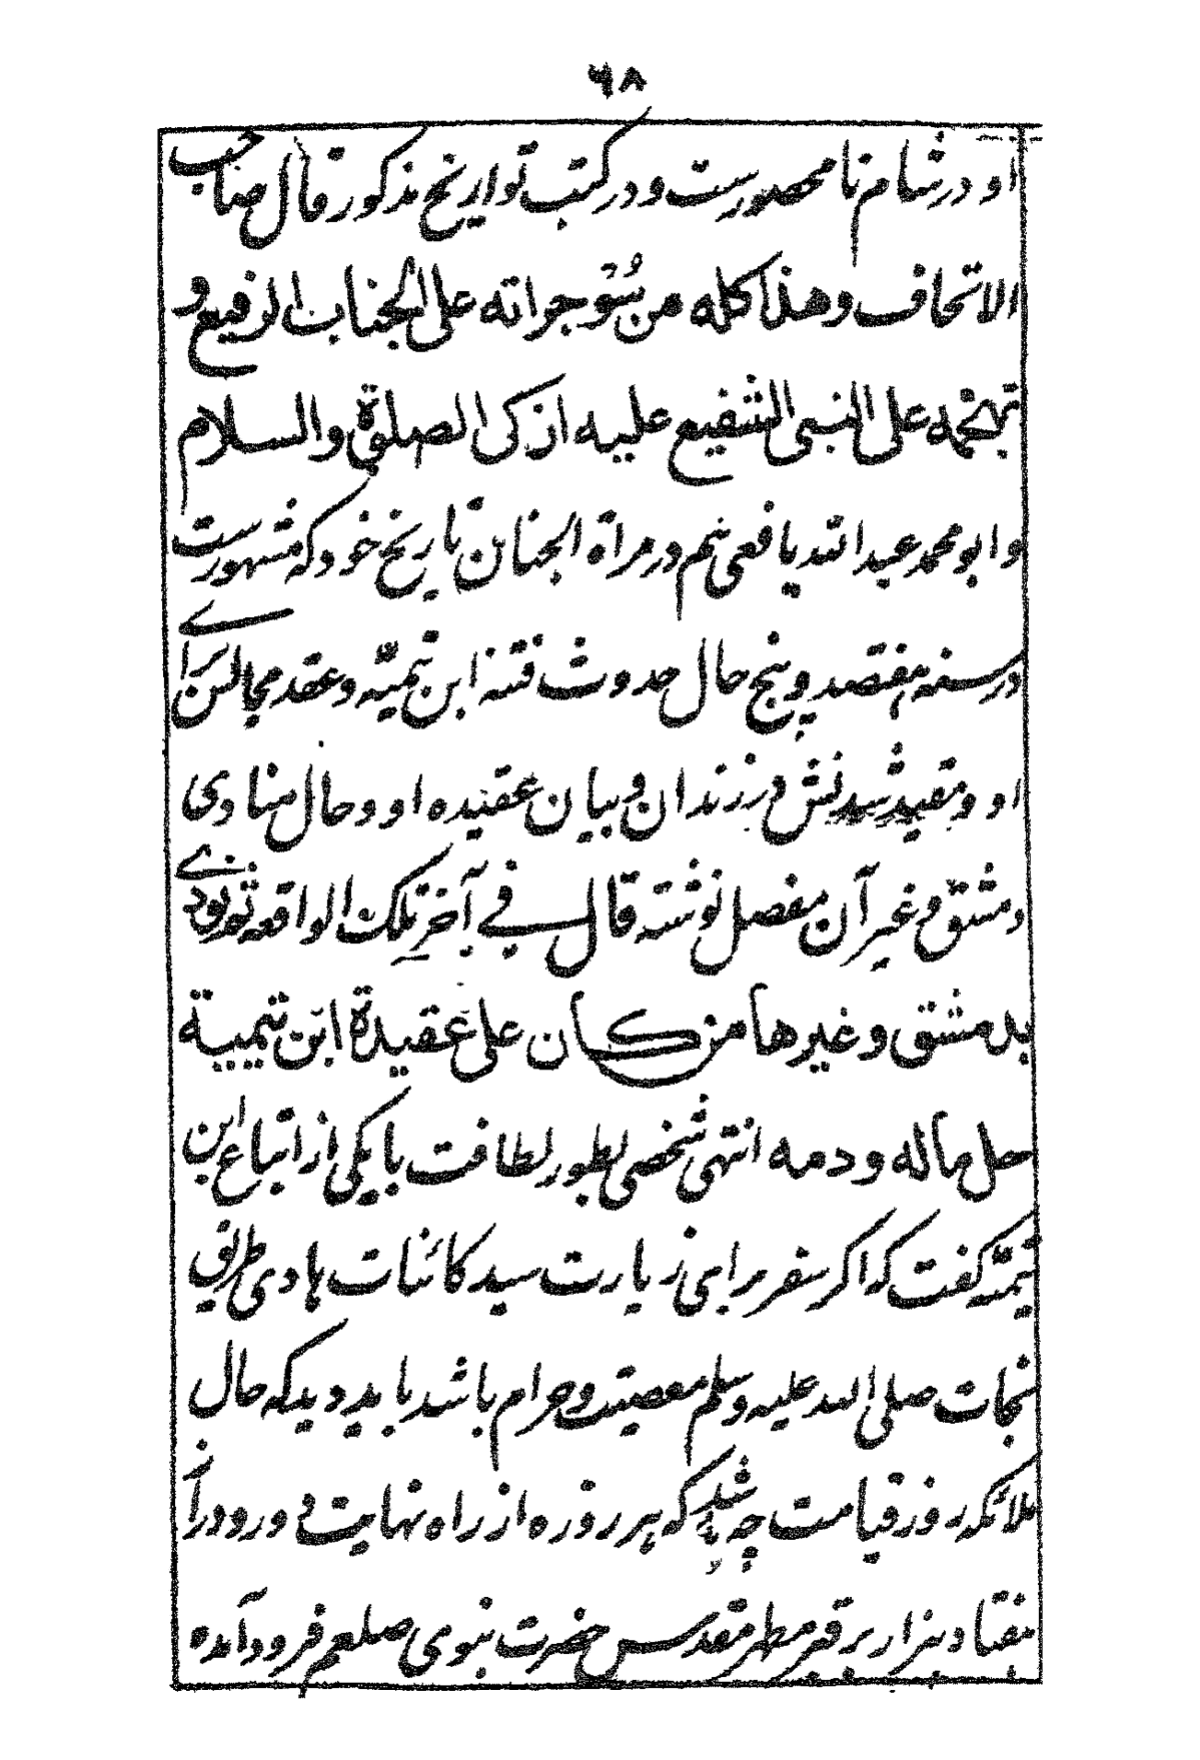 ۶۸
او در شام نا محصور ست و در کتب تواریخ مذکور قال صاحب
الاتحاف وهذا كله من سُوء جراته على الجناب الرفيع و
تهجمه على النبى الشفيع عليه ازكى الصلوة والسلام
و ابو محمد عبد الله یافعی هم در مراة الجنان تاریخ خود که مشهور ست
در سنه هفتصد و پنج حال حدوث فتنه ابن تیمیّه و عقد مجالس برای
او و مقید شدنش در زندان و بیان عقیده او و حال منادی
دمشق و غیر آن مفصل نوشته قال فی آخر تلک الواقعه ثم نودی
بدمشق وغيرها من كان على عقيدة ابن تيمية
حل ماله ودمه انتهى شخصی بطور لطافت با یکی از اتباع ابن
تیمیّه گفت که اگر سفر برای زیارت سید کائنات هادی طریق
نجات صلی الله علیه وسلم معصیت و حرام باشد باید دید که حال
ملائکه روز قیامت چه باشد که هر روزه از راه نهایت دور و دراز
هفتاد هزار بر قبر مطهر مقدس حضرت نبوی صلعم فرود آمده